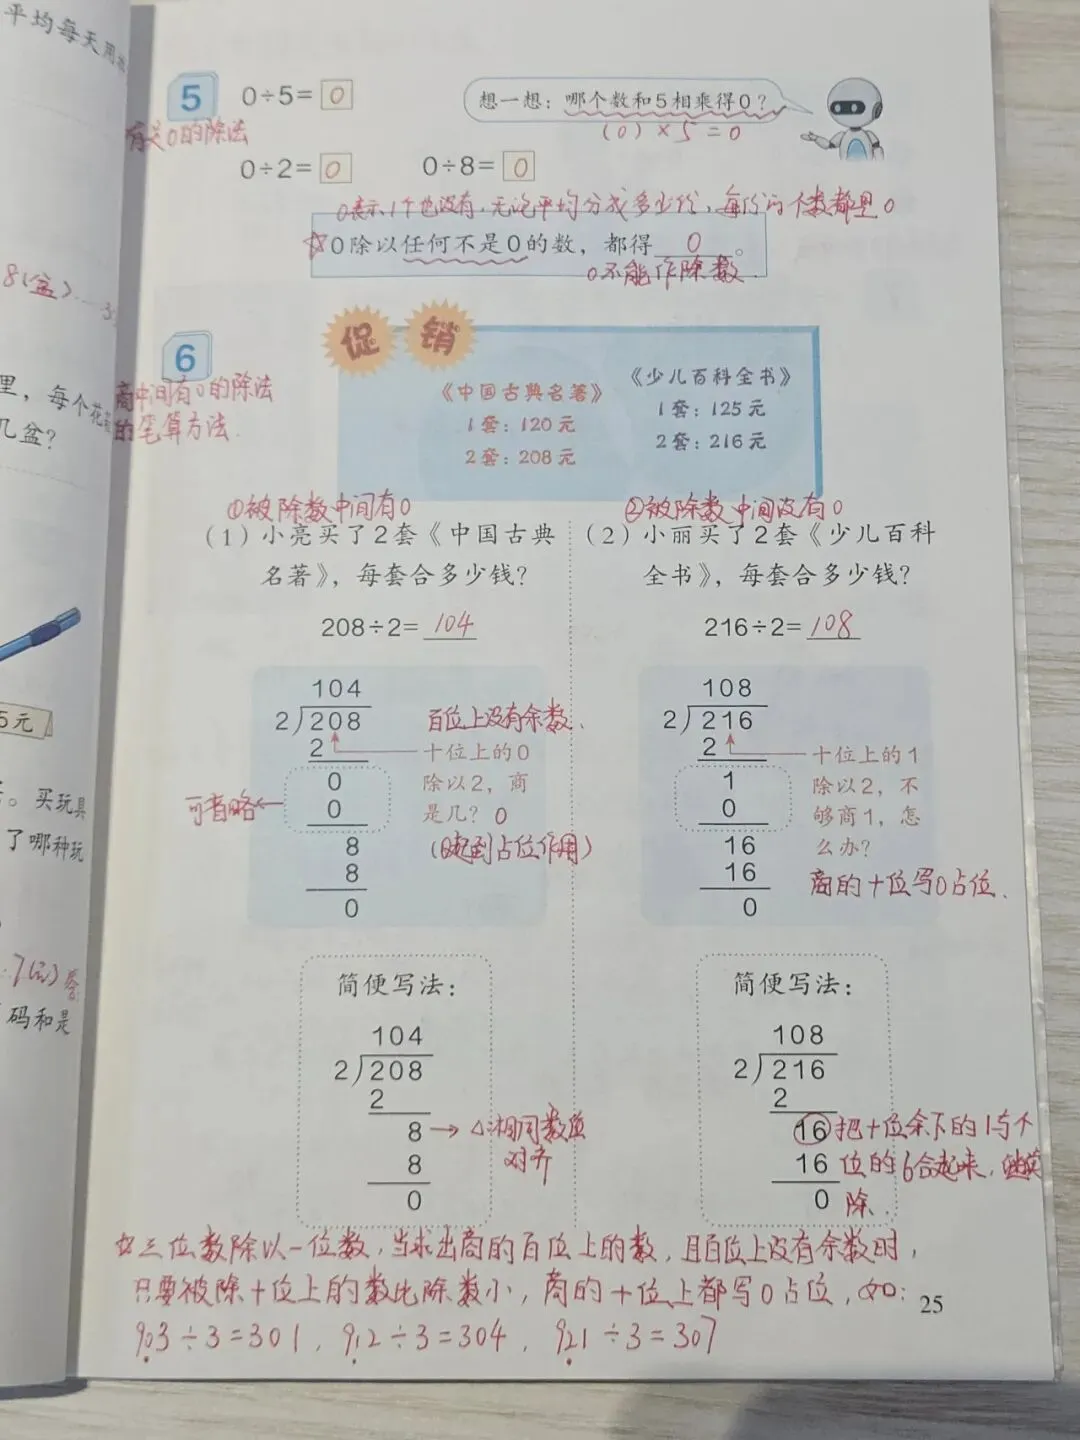 平均每天用
5
0÷5=0
想一想：哪个数和5相乘得0？
(0)×5=0
有关0的除法
0÷2=0
0÷8=0
0表示1个也没有，无论平均分成多少份，每份的个数都是0
☆0除以任何不是0的数，都得 0 。
0不能作除数.
8(盆)
促销
6
《中国古典名著》
1套：120元
2套：208元
《少儿百科全书》
1套：125元
2套：216元
里，每个花
几盆？
商中间有0的除法
的笔算方法.
①被除数中间有0
②被除数中间没有0
（1）小亮买了2套《中国古典
名著》，每套合多少钱？
208÷2=104
（2）小丽买了2套《少儿百科
全书》，每套合多少钱？
216÷2=108
5元
104
2)208
2
0
0
8
8
0
百位上没有余数.
十位上的0
除以2，商
是几？0
(0起到占位作用)
可省略←
108
2)216
2
1
0
16
16
0
十位上的1
除以2，不
够商1，怎
么办？
商的十位写0占位.
。买玩具
了哪种玩
码和是
简便写法：
104
2)208
2
8→△相同数位
对齐
8
0
简便写法：
108
2)216
2
16 把十位余下的1与个
16 位的6合起来，继续
0 除.
☆三位数除以一位数，当求出商的百位上的数，且百位上没有余数时，
只要被除十位上的数比除数小，商的十位上都写0占位，如：
903÷3=301，912÷3=304，921÷3=307
25